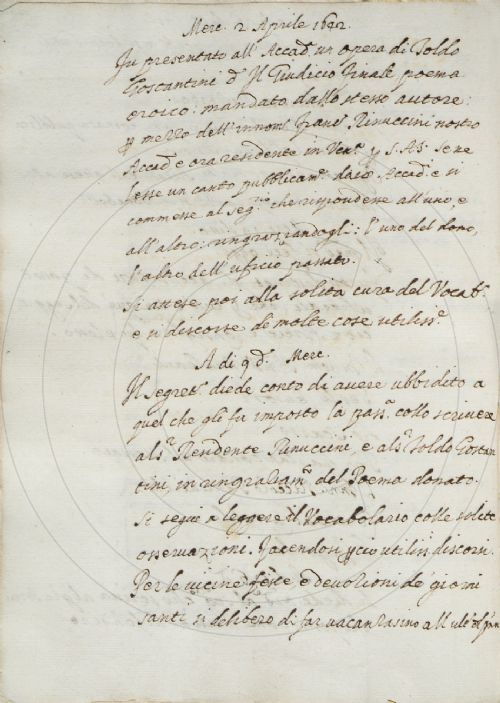 Merc. 2 Aprile 1642.
Fu presentato all' Accad. un opera di Toldo
Costantini d. Il Giudicio Finale poema
eroico: mandato dallo stesso autore:
p mezzo dell' innom. Franc. Rinuccini nostro
Accad. e ora residente in Ven. p S. A. se ne
lesse un canto pubblicam. da io Accad. e si
commesse al Seg. che rispondesse all' uno, e
all' altro: ringraziandogli: l'uno del dono,
l'altro dell' uficio passato.
Si attese poi alla solita cura del Vocab.
e si discorse de molte cose utiliss.
A di 9 d. Merc.
Il segret. diede conto di avere ubbidito a
quel che gli fu imposto la pass. collo scrivere
al S. Residente Rinuccini, e al S. Toldo Costan
tini, in ringraziam. del Poema donato.
Si seguì a leggere il Vocabolario colle solite
osservazioni. facendosi utiliss. discorsi.
Per le vicine feste e devozioni de' giorni
santi si deliberò di far vacanza sino all'